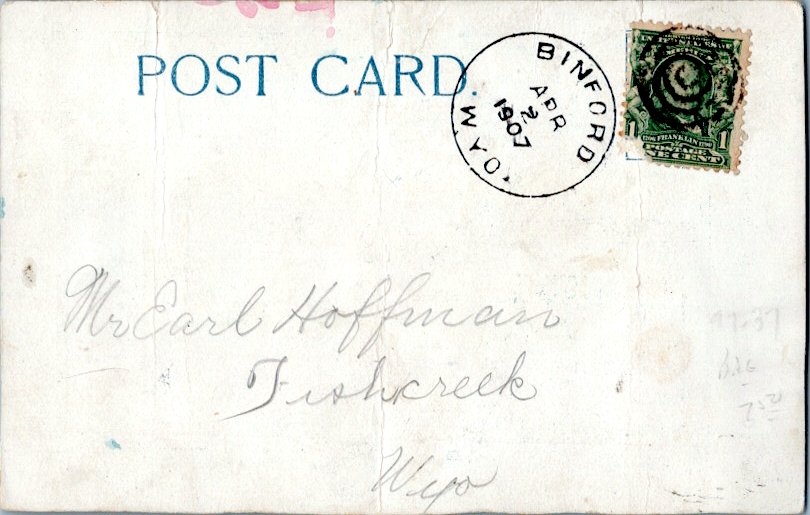 POST CARD.
BINFORD
APR
2
1907
WYO.
1
1706 FRANKLIN 1790
1
POSTAGE
ONE CENT
Mr Earl Hoffman
Fishcreek
Wyo